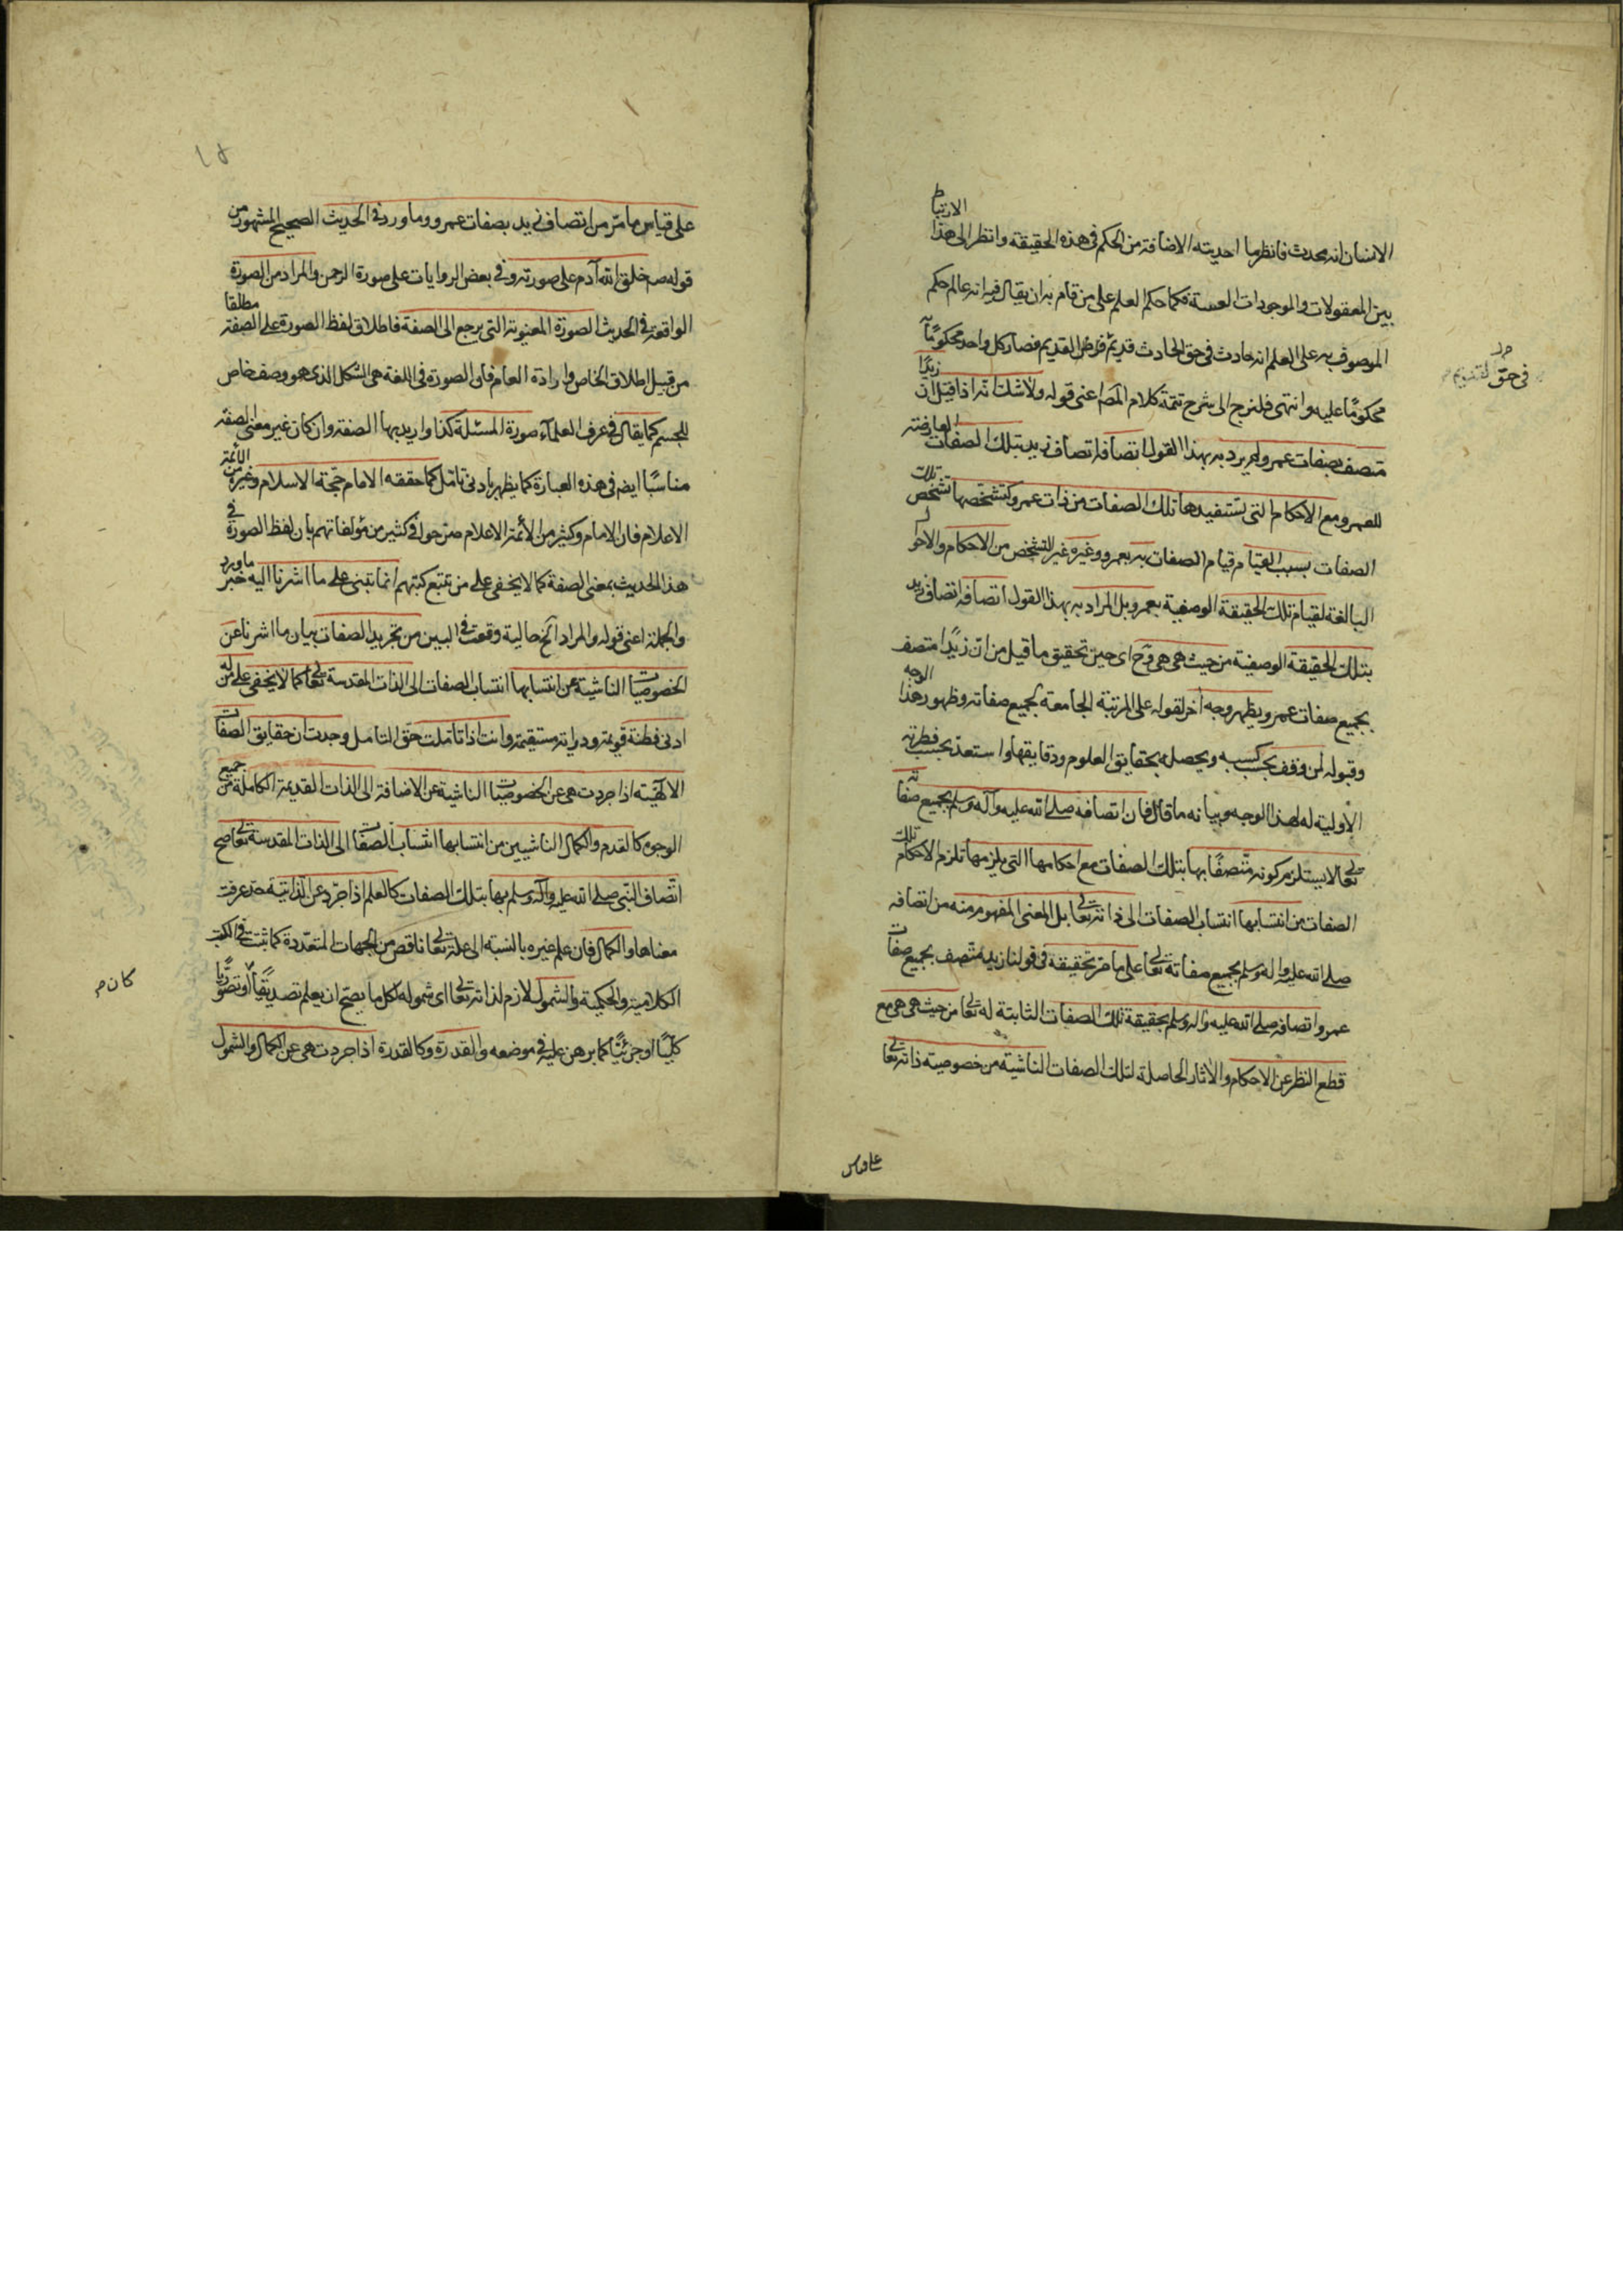 الانسان انه محدث فانظر ما احدثته الاضافة من الحكم فى هذه الحقيقة وانظر الى هذا الارتباط
بين المعقولات والموجودات العينية فكما حكم العلم على من قام به ان يقال فيه انه عالم حكم
الموصوف به على العلم انه حادث فى حق الحادث قديم فى حق القديم فصار كل واحد محكومًا به
محكومًا عليه وانتهى فلنرجع الى شرح تتمة كلام المص اعنى قوله ولا شك انه اذا قيل ان زيدًا
متصف بصفات عمرو لم يرد به بهذا القول اتصافه اتصاف زيد بتلك الصفات العارضة
للعمرو مع الاحكام التى تستفيدها تلك الصفات من ذات عمرو كتشخصها تشخص تلك
الصفات بسبب القيام قيام الصفات به بعمرو وغيره غير التشخص من الاحكام والاحوال
البالغة لقيام تلك الحقيقة الوصفية بعمرو بل المراد به بهذا القول اتصافه اتصاف زيد
بتلك الحقيقة الوصفية من حيث هى هى وح اى حين تحقيق ما قيل من ان زيدًا متصف
بجميع صفات عمرو يظهر وجه آخر لقوله على المرتبة الجامعة لجميع صفاته وظهور هذا الوجه
وقبوله لمن وقف بحسب كسبه وتحصيله بحقايق العلوم ودقايقها واستعد بحسب فطرته
الأولية له لهذا الوجه وبيانه ما قال فان اتصافه صلى الله عليه وآله وسلم بجميع صفاته
تعالى لا يستلزم كونه متصفًا بها بتلك الصفات مع احكامها التى يلزمها تلزم الاحكام تلك
الصفات من انتسابها انتساب الصفات الى ذاته تعالى بل المعنى المفهوم منه من اتصافه
صلى الله عليه وآله وسلم بجميع صفاته تعالى على ما مر تحقيقه فى قولنا زيد متصف بجميع صفات
عمرو اتصافه صلى الله عليه وآله وسلم بحقيقة تلك الصفات الثابتة له تعالى من حيث هى هى مع
قطع النظر عن الاحكام والآثار الحاصلة لتلك الصفات الناشية من خصوصية ذاته تعالى
فى حق القديم
على قياس
١٥
على قياس ما مرّ من اتصاف زيد بصفات عمرو وما ورد فى الحديث الصحيح المشهور من
قوله صم خلق الله آدم على صورته وفى بعض الروايات على صورة الرحمن والمراد من الصورة
الواقعة فى الحديث الصورة المعنوية التى يرجع الى الصفة فاطلاق لفظ الصورة على الصفة مطلقا
من قبيل اطلاق الخاص وارادة العام فان الصورة فى اللغة هى الشكل الذى هو وصف خاص
للجسم كما يقال فى عرف العلمآء صورة المسئلة كذا واريد بها الصفة وان كان غير معنى الصفة
مناسبًا ايضم فى هذه العبارة كما يظهر بادنى تامّل كما حققه الامام حجّة الاسلام وغيره من الأئمة
الاعلام فان الامام وكثير من الأئمة الاعلام صرّحوا فى كثير من مؤلفاتهم بان لفظ الصورة فى
هذا الحديث بمعنى الصفة كما لا يخفى على من تتبع كتبهم انما يبتنى على ما اشرنا اليه خبر ما ورد
والجملة اعنى قوله والمراد الخ حالية وقعت فى البين من تجريد الصفات بيان ما اشرنا عن
الخصوصيات الناشية عن انتسابها انتساب الصفات الى الذات المقدسة تعالى كما لا يخفى على من له
ادنى فطنة قويمة ودراية مستقيمة وانت اذا تاملت حقّ التامل وجدت ان حقايق الصفات
الالهيّة اذا جردت هى عن الخصوصيات الناشية عن الاضافة الى الذات القديمة الكاملة من جميع
الوجوه كالقدم والكمال الناشيين من انتسابها انتساب الصفات الى الذات المقدسة تعالى صح
اتّصاف النّبى صلى الله عليه وآله وسلم بها بتلك الصفات كالعلم اذا جرّد عن الذاتية قد عرفت
معناها والكمال فان علم غيره بالنسبة الى علمه تعالى ناقص من الجهات المتعدّدة كما ثبت فى الكتب
الكلامية والحكمية والشمول اللازم لذاته تعالى اى شموله لكل ما يصحّ ان يعلم تصديقًا او تصورًا
كليًّا او جزئيًّا كما برهن عليه فى موضعه والقدرة وكالقدرة اذا جردت هى عن الكمال والشمول
كان م